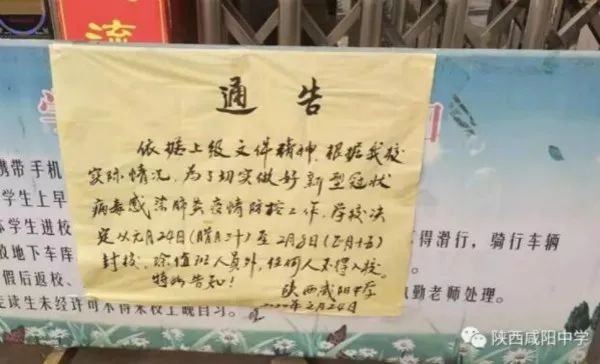 流
通告
依据上级文件精神，根据我校
实际情况，为了切实做好新型冠状
病毒感染肺炎疫情防控工作，学校决
定从元月24日(腊月三十)至2月8日(正月十五)
封校，除值班人员外，任何人不得入校。
特此告知！
陕西咸阳中学
2020年元月24日
携带手机
学生上早
学生进校
地下车库
假后返校、
读生未经许可不得来校上晚自习。
得滑行，骑行车辆
勤老师处理。
陕西咸阳中学